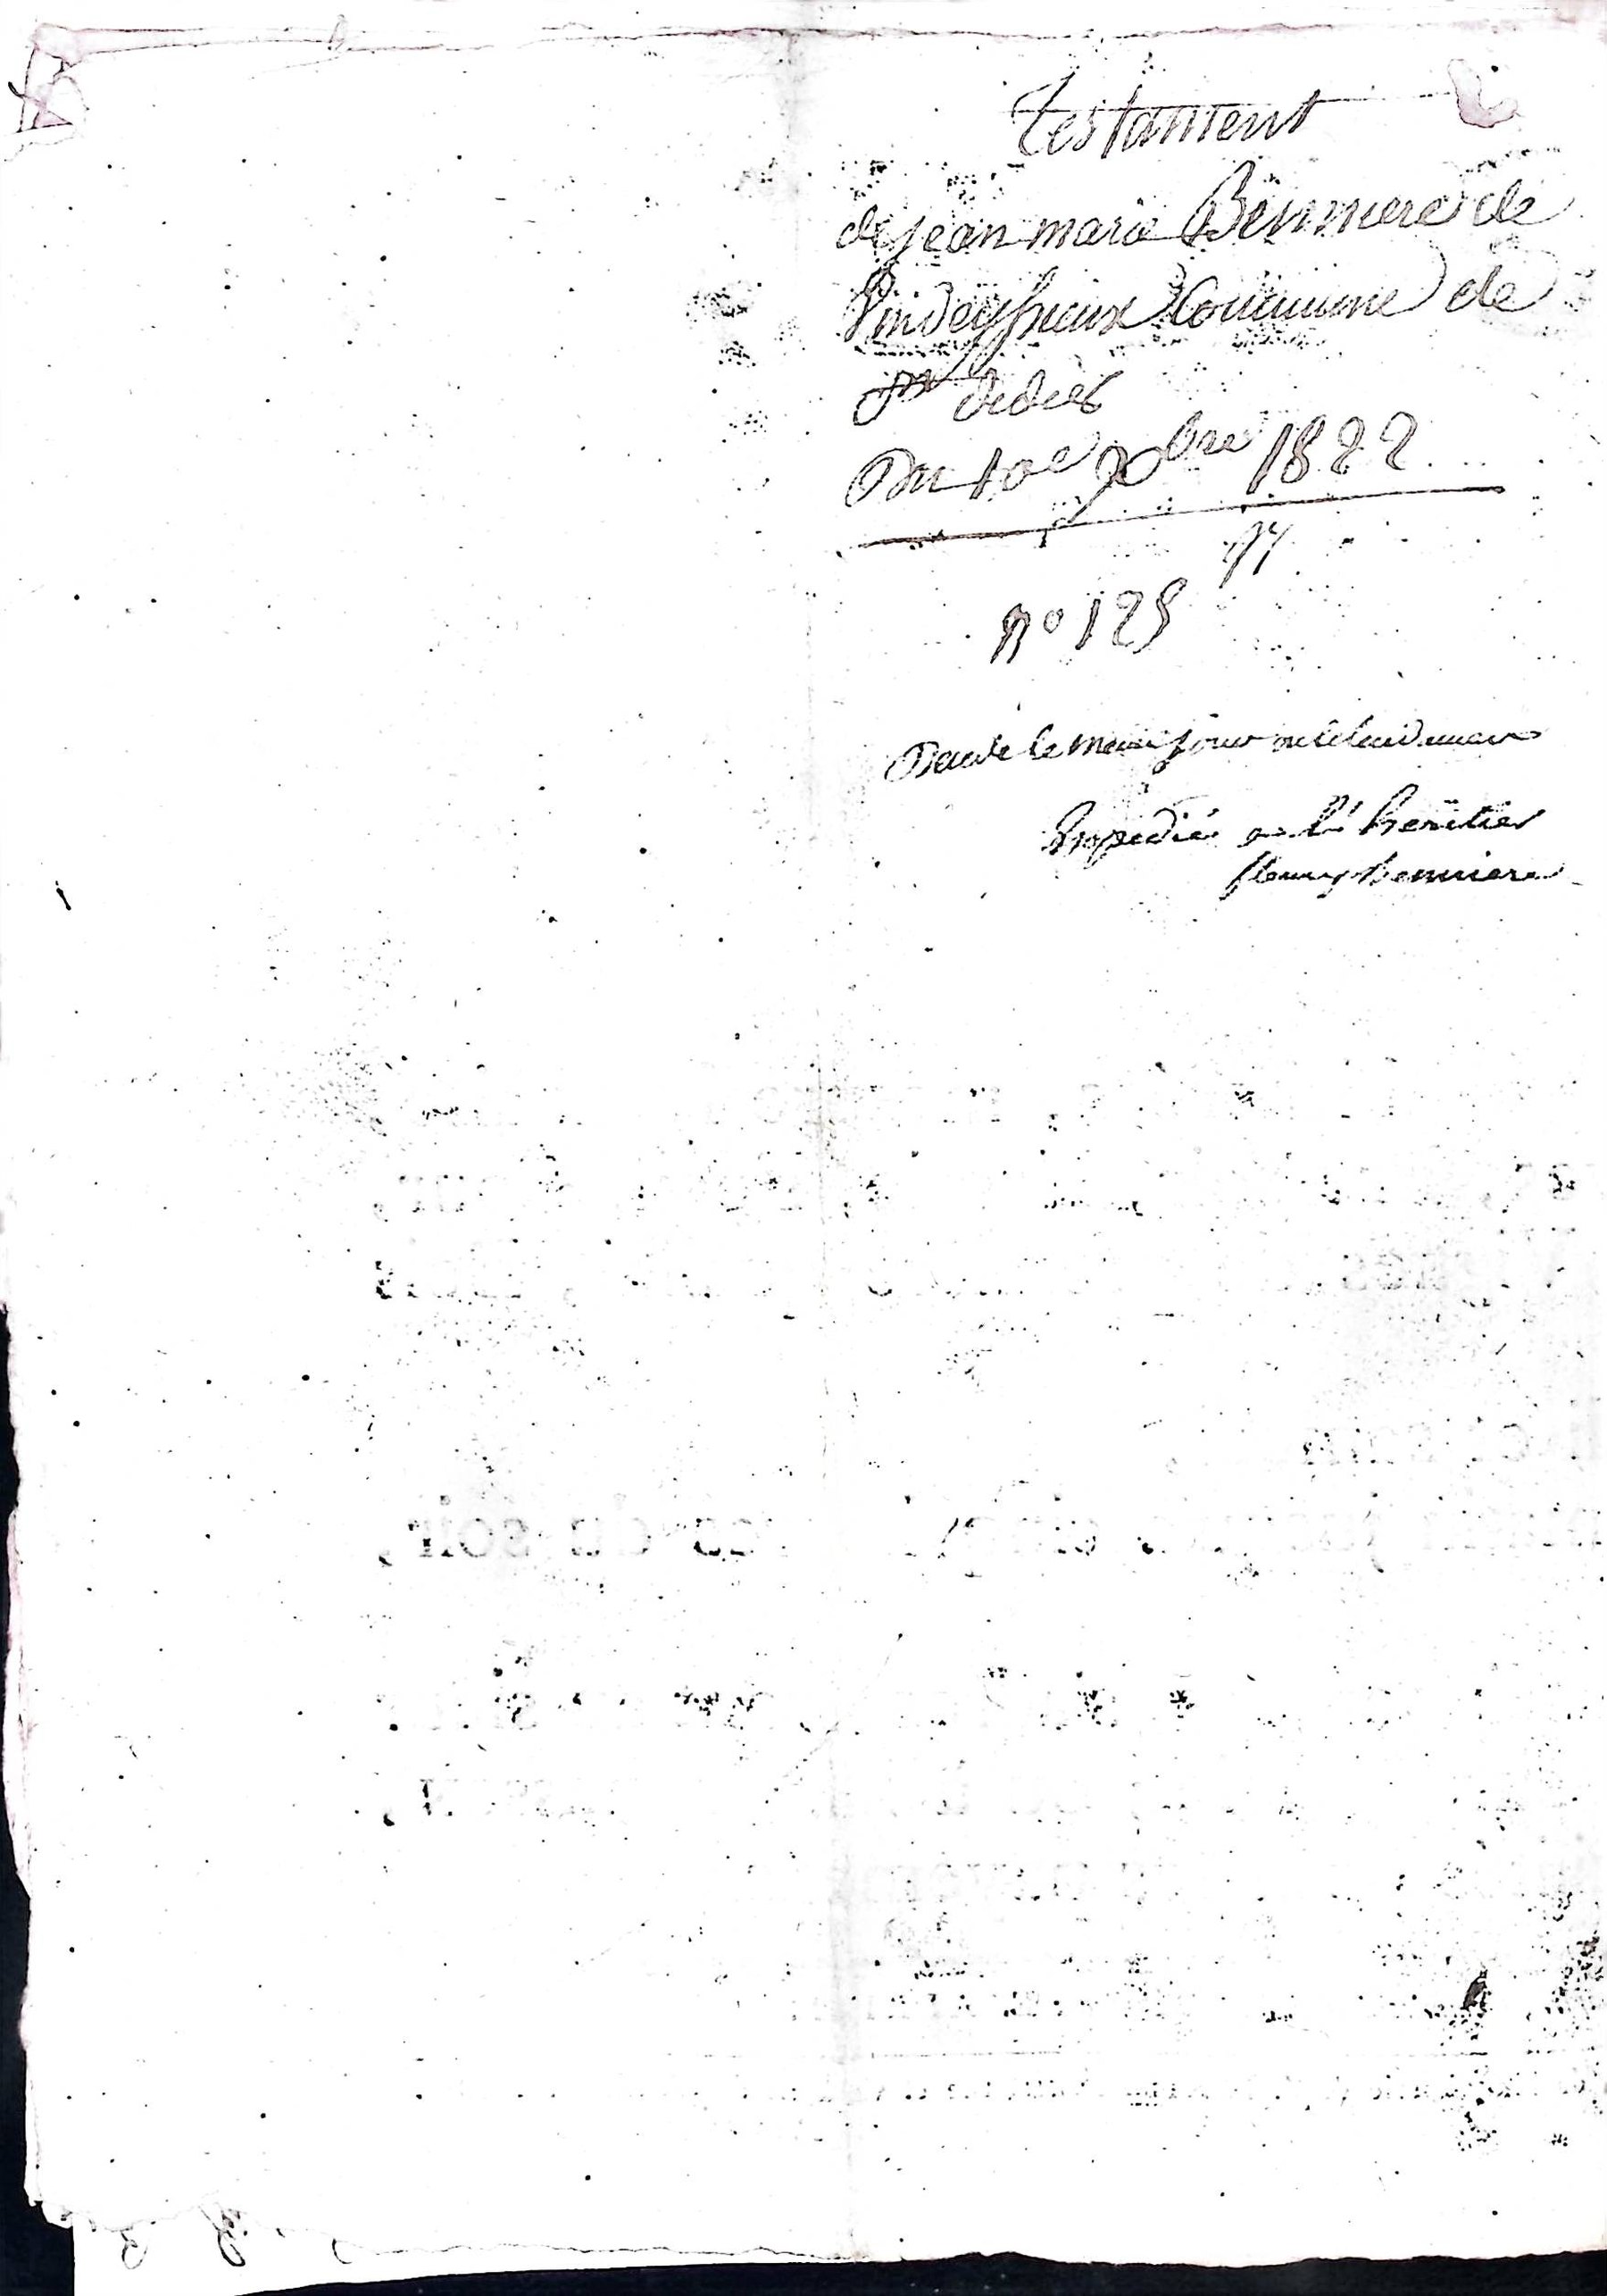 testament
de jean marie Bënmere de
Vindeyhieux Commune de
St didier
Du 10e 9bre 1822
no 125
le meme jour
Expedié a l'heritier
fleury Benniere